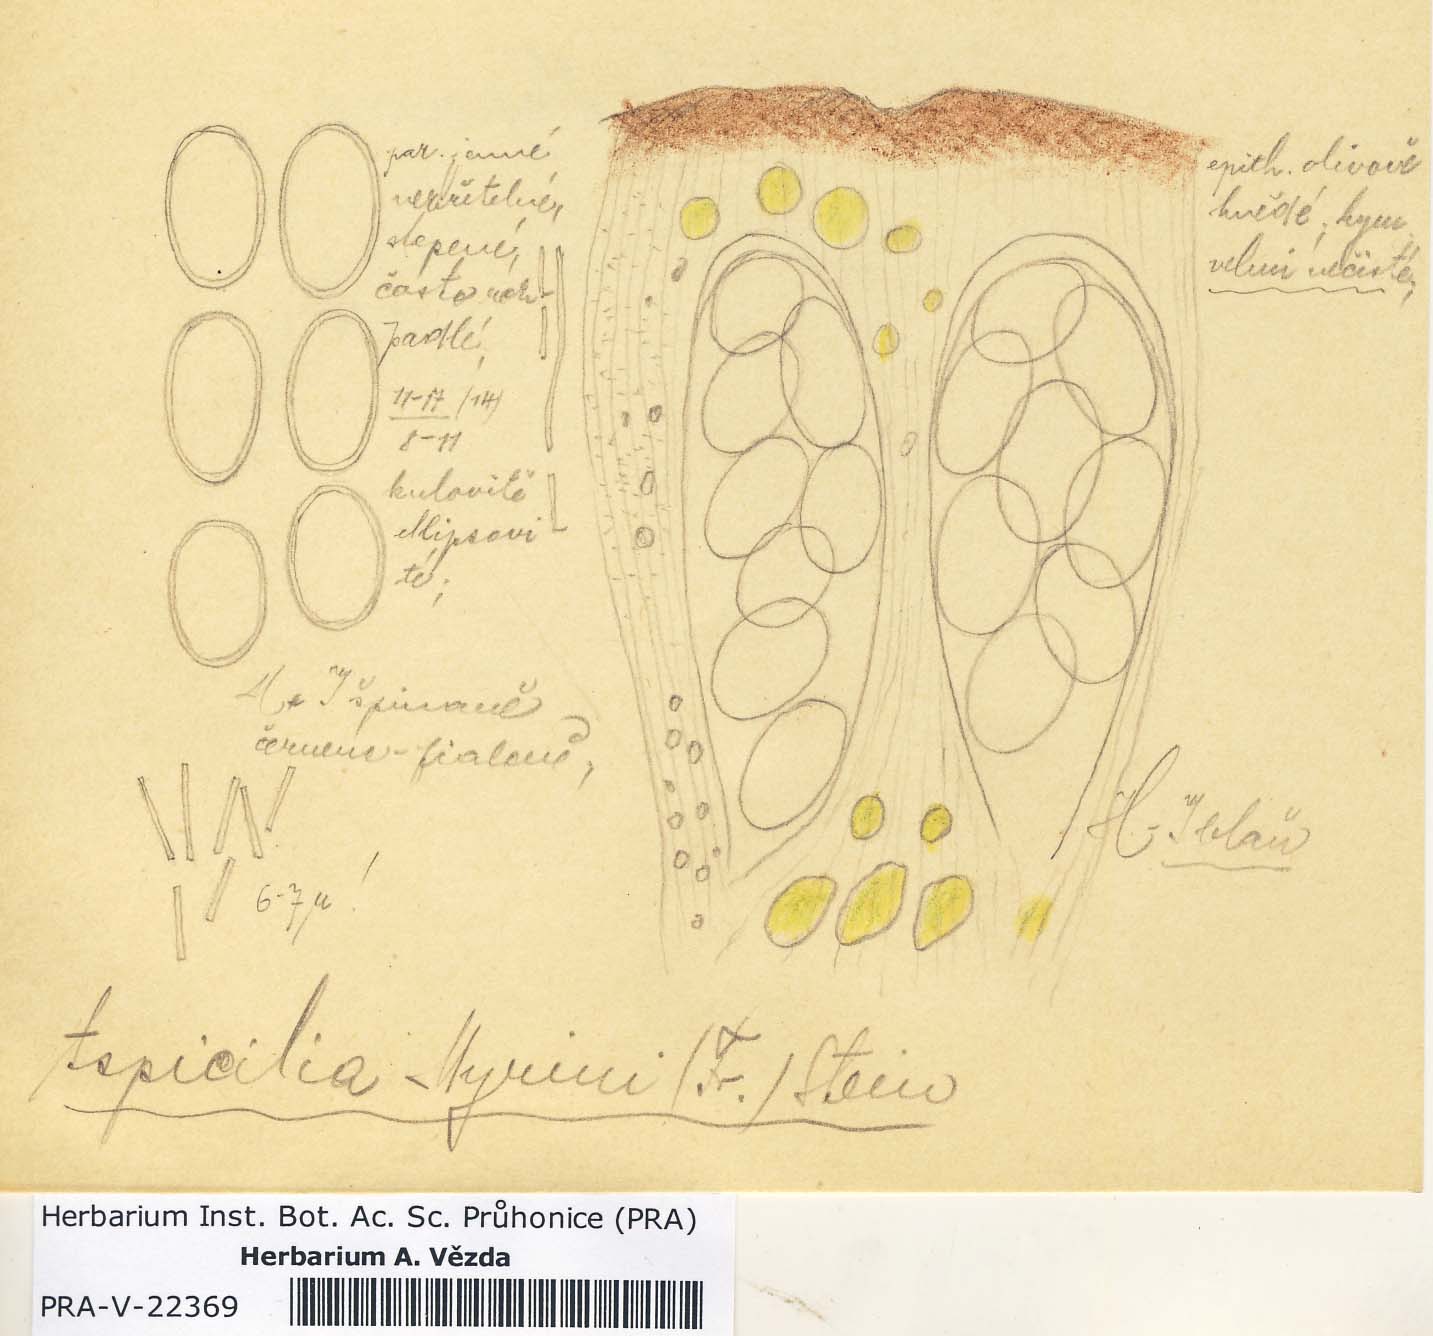 par. jemné
nezřetelné,
slepené,
často roz-
padlé,
11-17 (14)
8-11
kulovitě
ellipsovi
té;
H + J špinavě
červeno-fialově,
6-7 µ !
epith. olivově
hnědé, hym.
velmi nečisté,
H-J blau
Aspicilia Myrini (Fr.) Stein
Herbarium Inst. Bot. Ac. Sc. Průhonice (PRA)
Herbarium A. Vězda
PRA-V-22369